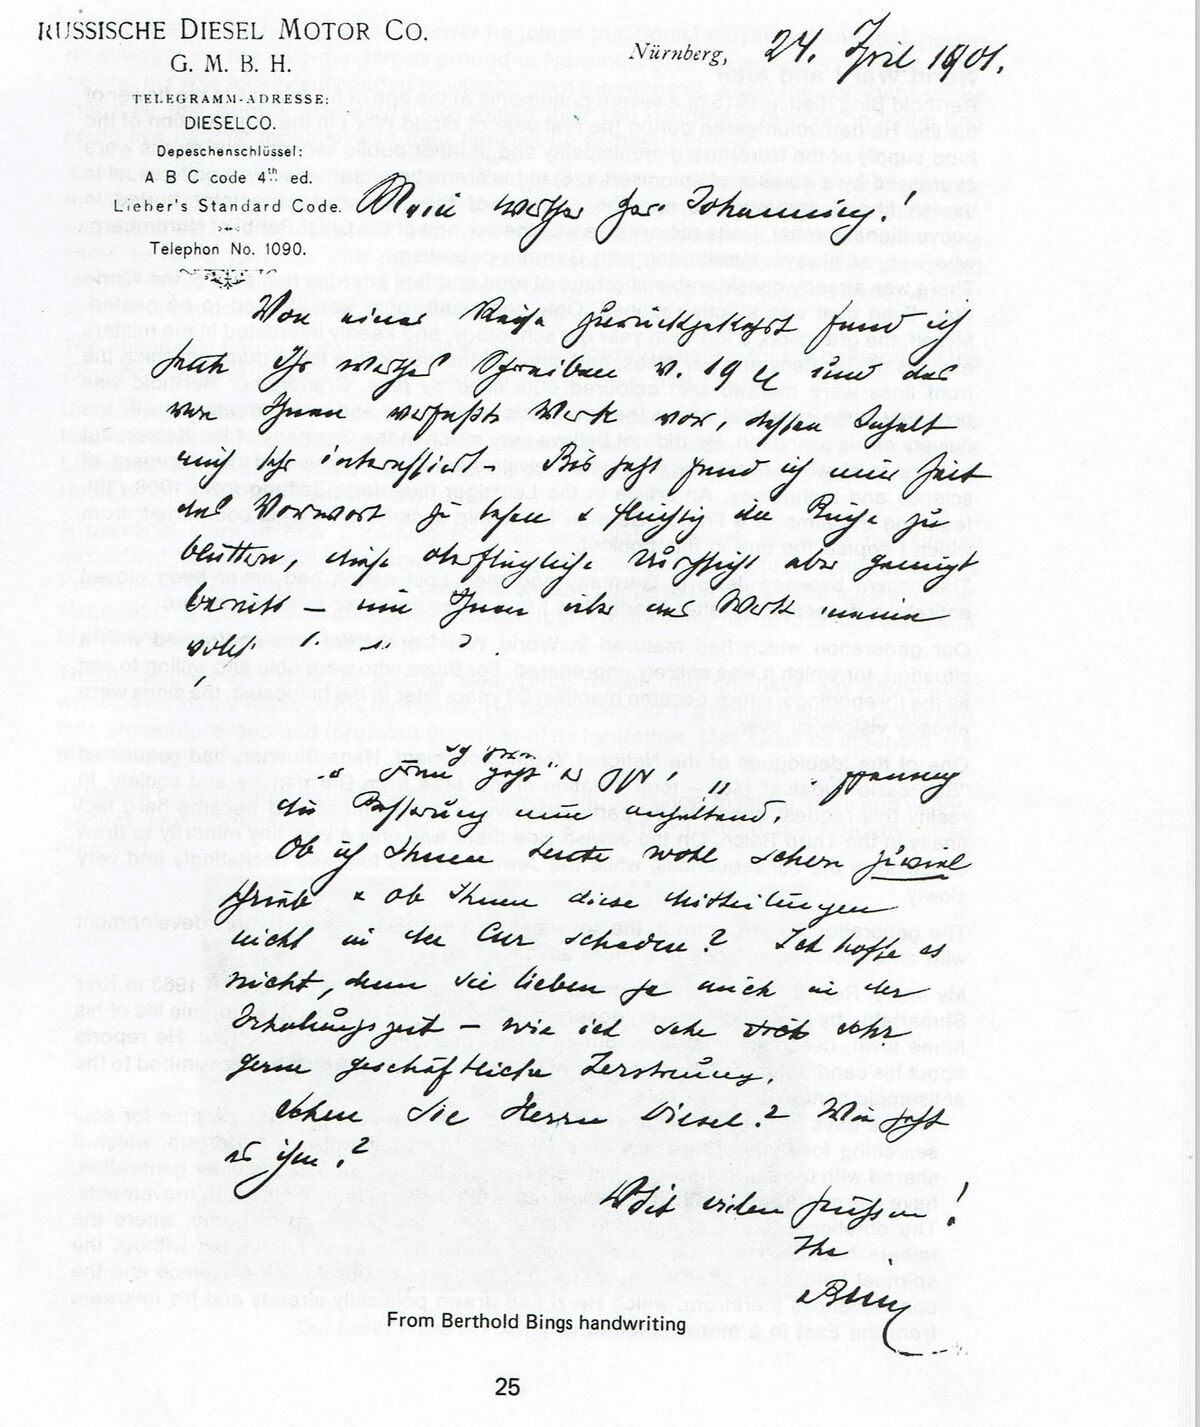 RUSSISCHE DIESEL MOTOR CO.
G. M. B. H.
TELEGRAMM-ADRESSE:
DIESELCO.
Depeschenschlüssel:
A B C code 4th ed.
Lieber's Standard Code.
Telephon No. 1090.
Nürnberg, 24. April 1901.
Mein werther Herr Johanning!
Von einer Reise zurückgekehrt fand ich
heute Ihr werthes Schreiben v. 19 und das
von Ihnen verfaßte Werk vor, dessen Inhalt
mich sehr interessiert - Bis jetzt fand ich nur Zeit
das Vorwort zu lesen & flüchtig die Reihe zu
blättern, diese oberflächliche Durchsicht aber genügt
bereits - um Ihnen über das Werk meine
Frau geht es
die Besserung nun anhaltend.
Ob ich Ihnen heute wohl schon zuviel
schrieb & ob Ihnen diese Mitteilungen
nicht in der Cur schaden? Ich hoffe es
nicht, denn Sie lieben ja auch in der
Erholungszeit - wie ich sehr
gerne geschäftliche Zerstreuung.
Sehen Sie Herrn Diesel? Wie geht
es ihm?
Mit vielen Grüssen!
Ihr
Bing
From Berthold Bings handwriting
25